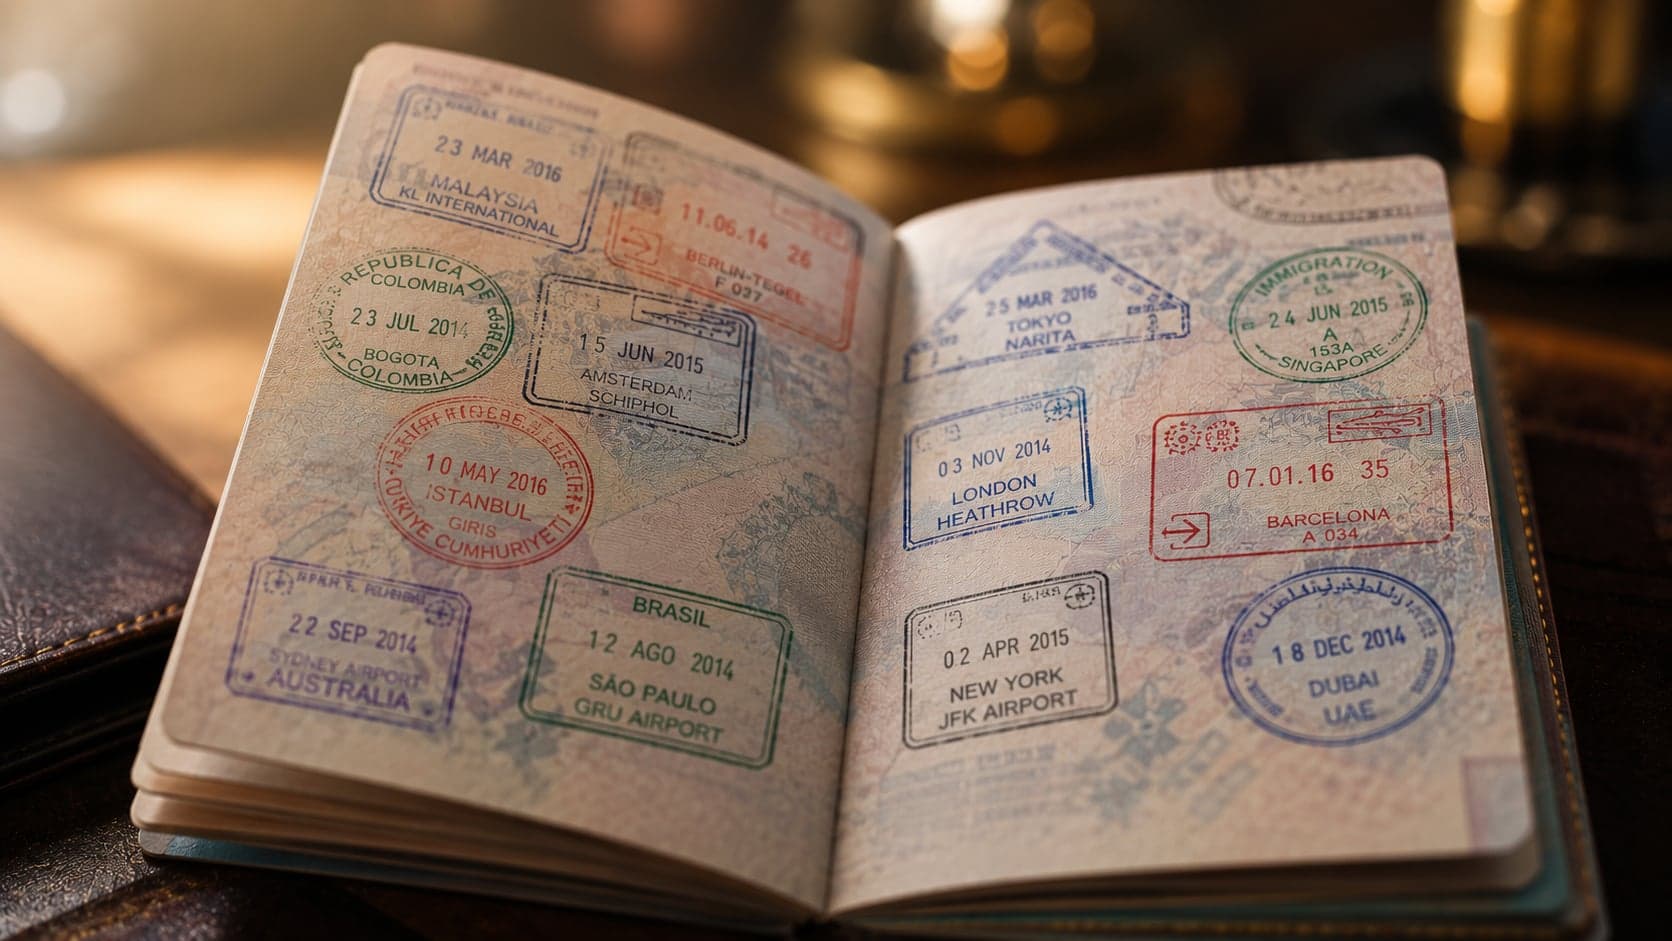 23 MAR 2016
MALAYSIA
KL INTERNATIONAL
11.06.14 26
BERLIN-TEGEL
F 027
REPUBLICA DE
COLOMBIA
23 JUL 2014
BOGOTA
COLOMBIA
15 JUN 2015
AMSTERDAM
SCHIPHOL
10 MAY 2016
ISTANBUL
GIRIS
CUMHURIYETI
22 SEP 2014
SYDNEY AIRPORT
AUSTRALIA
BRASIL
12 AGO 2014
SÃO PAULO
GRU AIRPORT
25 MAR 2016
TOKYO
NARITA
IMMIGRATION
24 JUN 2015
A
153A
SINGAPORE
03 NOV 2014
LONDON
HEATHROW
07.01.16 35
BARCELONA
A 034
02 APR 2015
NEW YORK
JFK AIRPORT
18 DEC 2014
DUBAI
UAE